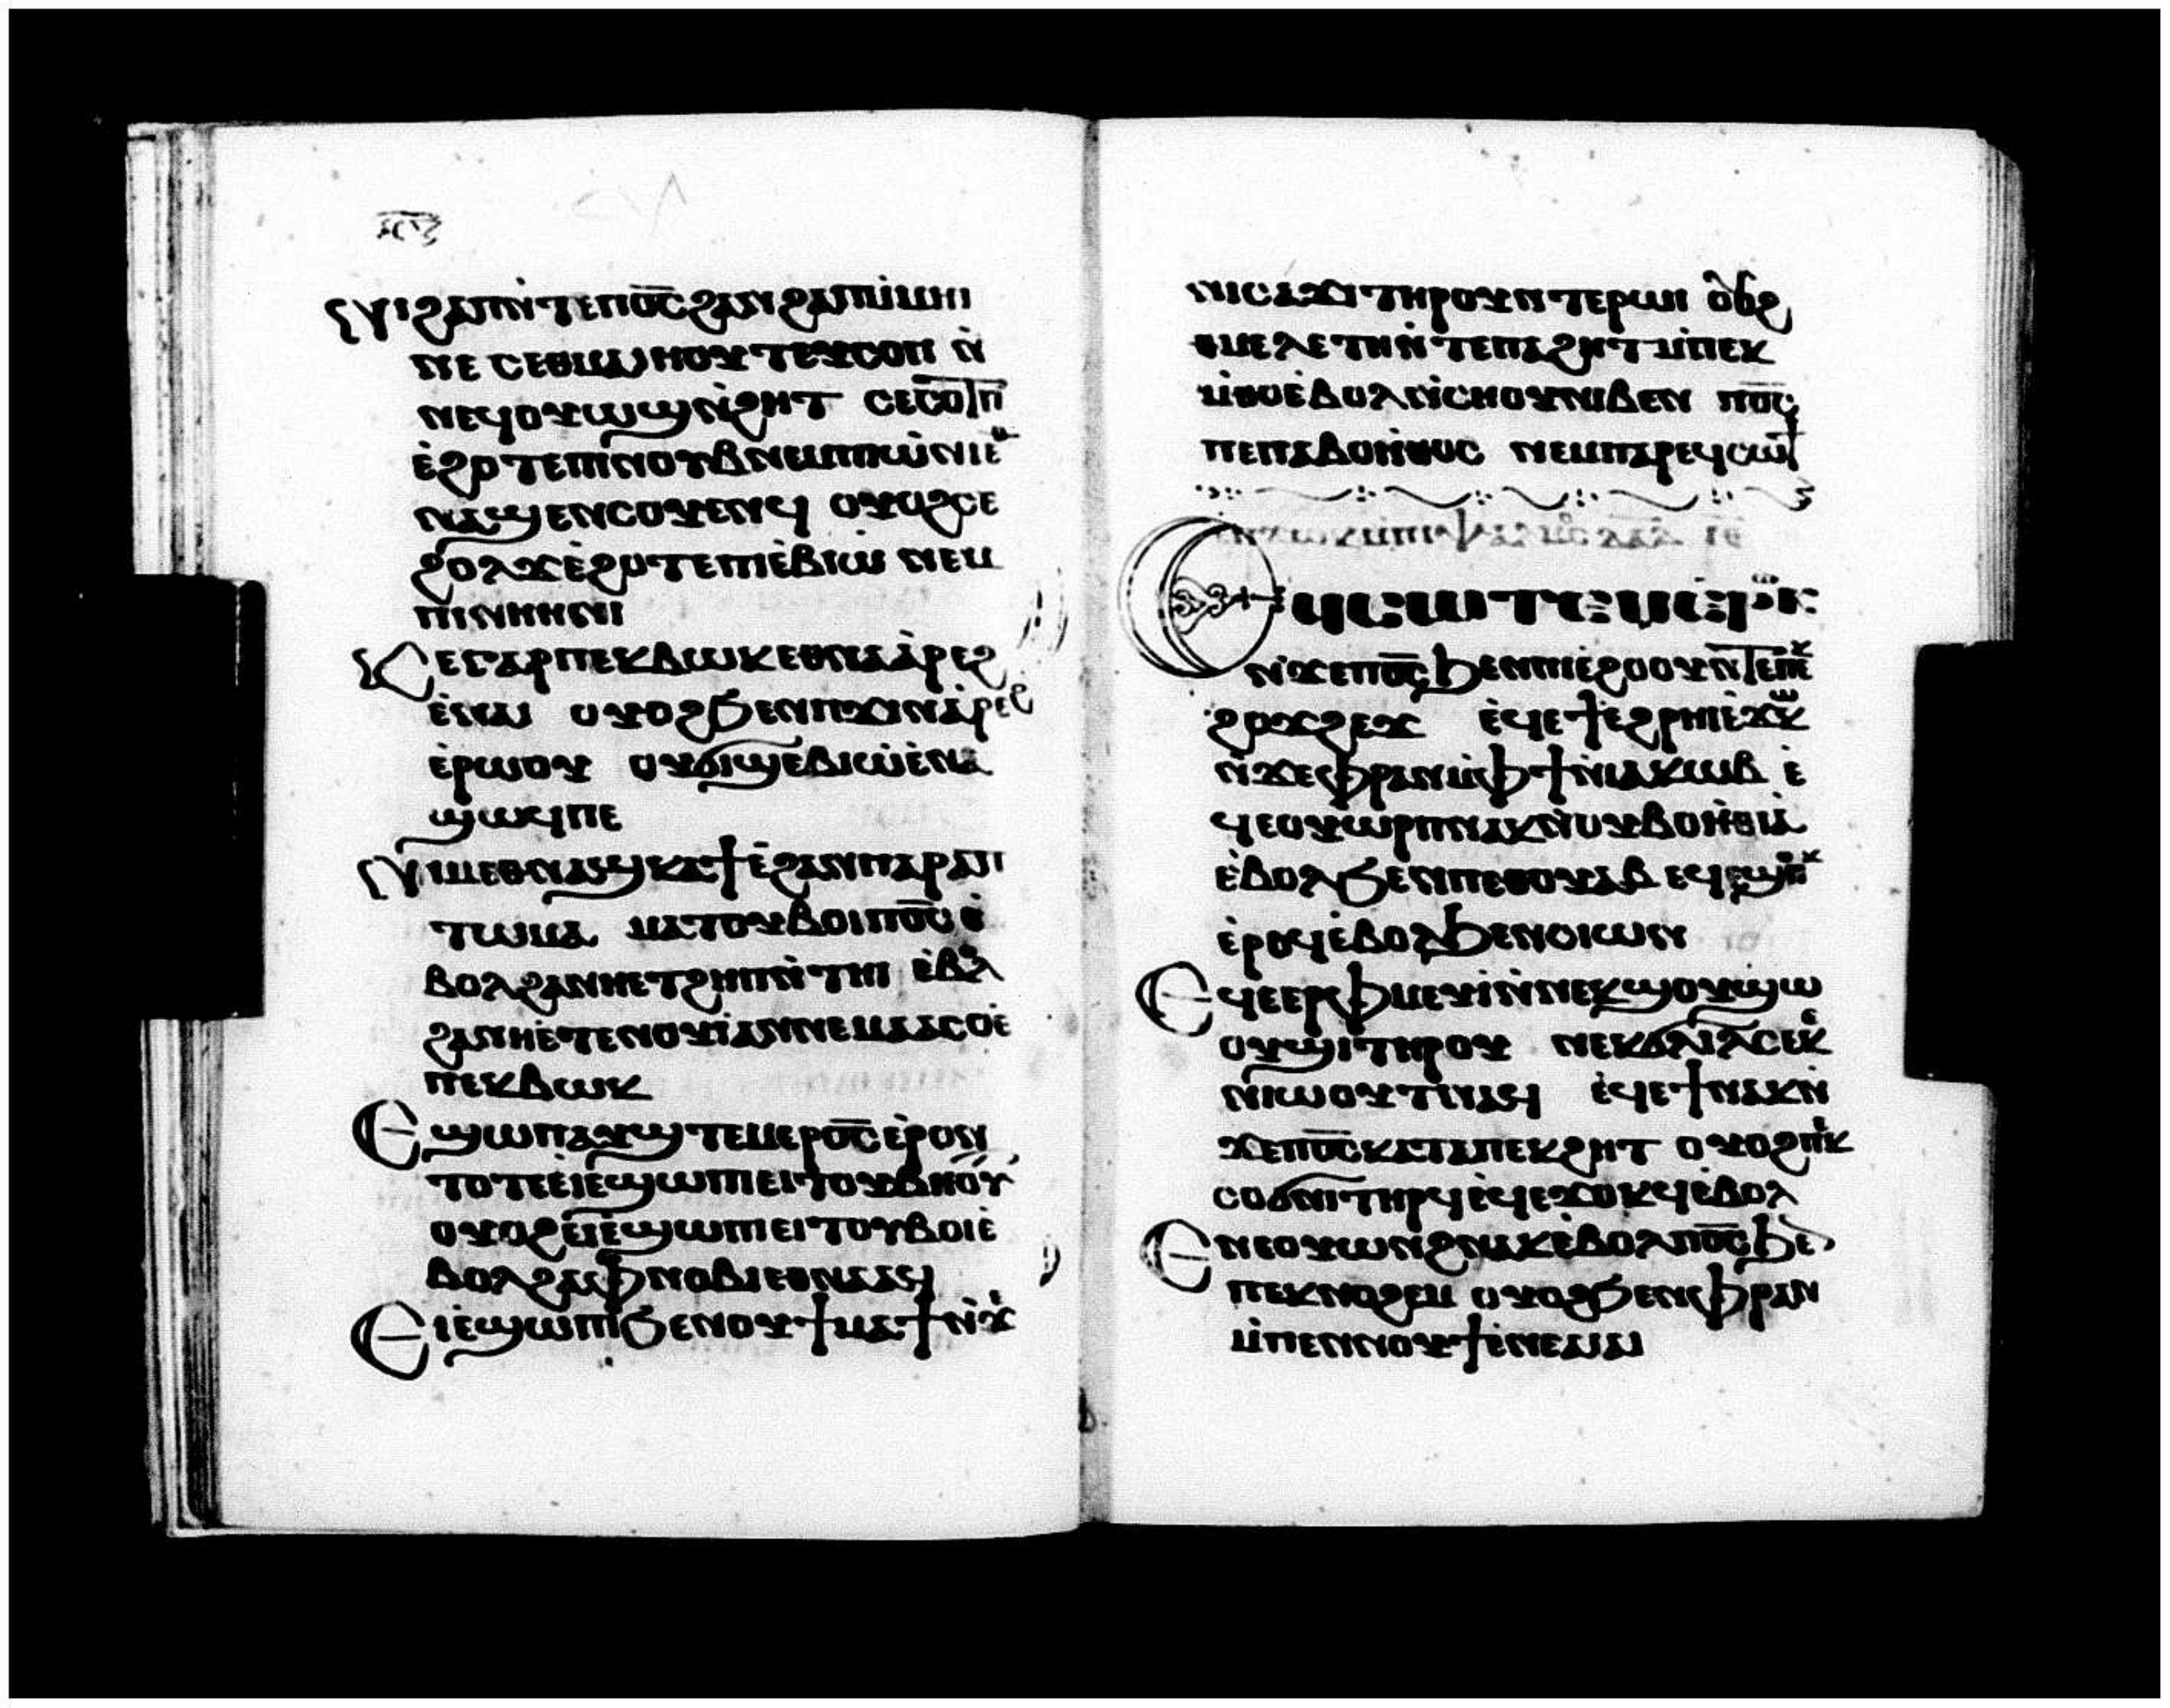 Ⲛⲓϩⲁⲡⲛ̀ⲧⲉⲡⲟ̅ⲥ̅ϩⲁⲛϩⲁⲡⲙ̀ⲙⲏⲓ
ⲛⲉ ⲥⲉⲑⲙⲁⲓⲏⲟⲩⲧⲉⲩⲥⲟⲡ ⲛ̀
ⲛⲉϥⲟⲩⲱϣⲛ̀ϩⲏⲧ ⲥⲉⲥⲟⲧⲡ
ⲉ̀ϩⲟⲧⲉⲡⲓⲛⲟⲩⲃⲛⲉⲙⲡⲓⲱ̀ⲛⲓⲉ
ⲛⲁϣⲉⲛⲥⲟⲩⲉⲛϥ ⲟⲩⲟϩⲥⲉ
ϩⲟⲗϫⲉ̀ϩⲟⲧⲉⲡⲓⲉ̀ⲃⲓⲱ̀ ⲛⲉⲙ
ⲡⲓⲛⲏⲏⲛⲓ
Ⲕⲉⲅⲁⲣⲡⲉⲕⲃⲱⲕⲉⲑⲛⲁⲁ̀ⲣⲉϩ
ⲉ̀ⲛⲁⲓ ⲟⲩⲟϩϧⲉⲛⲡϫⲓⲛⲁ̀ⲣⲉϩ
ⲉ̀ⲣⲱⲟⲩ ⲟⲩϭⲓϣⲉⲃⲓⲱ̀ⲉ̀ⲛⲁ
ϣⲱϥⲡⲉ
Ⲛⲓⲙⲉⲑⲛⲁϣⲕⲁϯⲉ̀ϩⲁⲛⲡⲁⲣⲁⲡ
ⲧⲱⲙⲁ ⲙⲁⲧⲟⲩⲃⲟⲓⲡⲟ̅ⲥ̅ⲉ̀
ⲃⲟⲗϩⲁⲛⲏⲉⲧϩⲏⲡⲛ̀ⲧⲏⲓ ⲉ̀ⲃⲟⲗ
ϩⲁⲛⲏⲉ̀ⲧⲉⲛⲟⲩⲓ̀ⲁⲛⲛⲉⲙⲁⲁⲥⲟⲉ̀
ⲡⲉⲕⲃⲱⲕ
Ⲉϣⲱⲡⲁⲩϣⲧⲉⲙⲉⲣⲟ̅ⲥ̅ⲉ̀ⲣⲟⲓ
ⲧⲟⲧⲉⲉⲓⲉ̀ϣⲱⲡⲓⲉⲓⲧⲟⲩⲃⲏⲟⲩⲧ
ⲟⲩⲟϩⲉⲓⲉ̀ϣⲱⲡⲓⲉⲓⲧⲟⲩⲃⲟⲓⲉ̀
ⲃⲟⲗϩⲁⲫⲛⲟⲃⲓⲉⲑⲛⲁⲁϥ
Ⲉⲓⲉ̀ϣⲱⲡⲓϧⲉⲛⲟⲩϯⲙⲁϯⲛ̀ϫⲉ
ⲛⲓⲥⲁϫⲓⲧⲏⲣⲟⲩⲛ̀ⲧⲉⲣⲱⲓ ⲟⲩⲟϩ
ⲑⲙⲉⲗⲉⲧⲏⲛ̀ⲧⲉⲡⲁϩⲏⲧⲙ̀ⲡⲉⲕ
ⲙ̀ⲑⲟⲉ̀ⲃⲟⲗⲛ̀ⲥⲏⲟⲩⲛⲓⲃⲉⲛ ⲡⲟ̅ⲥ̅
ⲡⲉⲡⲁⲃⲟⲏ̀ⲑⲟⲥ ⲛⲉⲙⲡⲁⲣⲉϥⲥⲱϯ
Ⲉϥⲥⲱⲧⲉⲙⲉⲣⲟⲕ
ⲛ̀ϫⲉⲡⲟ̅ⲥ̅ϧⲉⲛⲡⲓⲉϩⲟⲟⲩⲛ̀ⲧⲉⲡⲉⲕ
ϩⲟϫϩⲉϫ ⲉ̀ϥⲉϯⲉϩⲣⲏⲓⲉ̀ϫⲱⲕ
ⲛ̀ϫⲉⲫⲣⲁⲛⲙ̀ⲫϯⲛ̀ⲓⲁⲕⲱⲃ ⲉ̀
ϥⲉⲟⲩⲱⲣⲡⲛⲁⲕⲛ̀ⲟⲩⲃⲟⲏ̀ⲑⲓⲁ
ⲉ̀ⲃⲟⲗϧⲉⲛⲡⲉⲑⲟⲩⲁⲃ ⲉϥⲉϣⲟⲡⲕ
ⲉ̀ⲣⲟϥⲉ̀ⲃⲟⲗϧⲉⲛⲥⲓⲱⲛ
Ⲉϥⲉⲉⲣⲫⲙⲉⲩⲓ̀ⲛ̀ⲛⲉⲕϣⲟⲩϣⲱ
ⲟⲩϣⲓⲧⲏⲣⲟⲩ ⲛⲉⲕϭⲗⲓⲗⲥⲉⲕⲉ
ⲛⲓⲱⲟⲩⲧⲛⲁϥ ⲉ̀ϥⲉϯⲛⲁⲕⲛ̀
ϫⲉⲡⲟ̅ⲥ̅ⲕⲁⲧⲁⲡⲉⲕϩⲏⲧ ⲟⲩⲟϩⲡⲉⲕ
ⲥⲟϭⲛⲓⲧⲏⲣϥⲉ̀ϥⲉϫⲟⲕϥⲉ̀ⲃⲟⲗ
Ⲉⲛⲉⲟⲩⲱⲛϩⲛⲁⲕⲉ̀ⲃⲟⲗⲡⲟ̅ⲥ̅ϧⲉⲛ
ⲡⲉⲕⲛⲟϩⲉⲙ ⲟⲩⲟϩϧⲉⲛⲫⲣⲁⲛ
ⲙ̀ⲡⲉⲛⲛⲟⲩϯⲉ̀ⲛⲉⲁⲓⲁⲓ